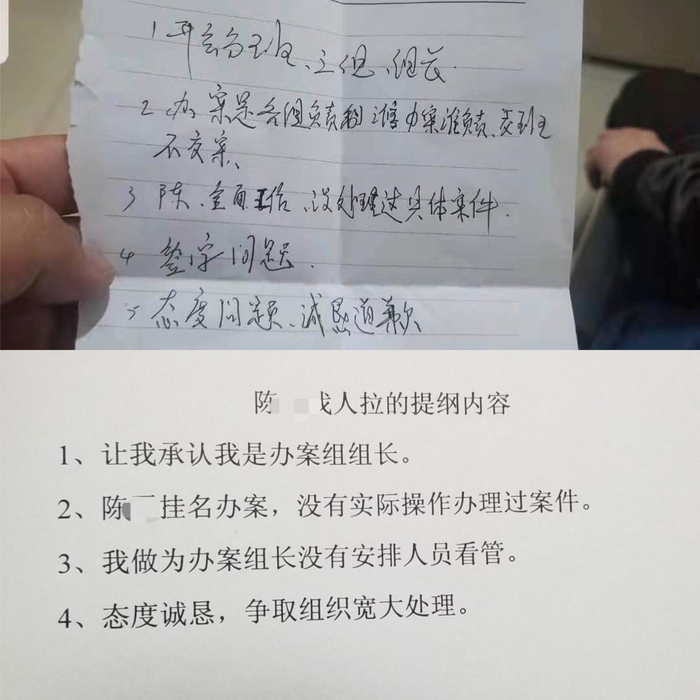 1 班、组长.
2 办案是各组负责制 谁办案谁负责、交班
不交案、
3 陈、全面工作、没处理过具体案件.
4 签字问题.
5 态度问题、诚恳道歉
陈 找人拉的提纲内容
1、让我承认我是办案组组长。
2、陈 挂名办案，没有实际操作办理过案件。
3、我做为办案组长没有安排人员看管。
4、态度诚恳，争取组织宽大处理。